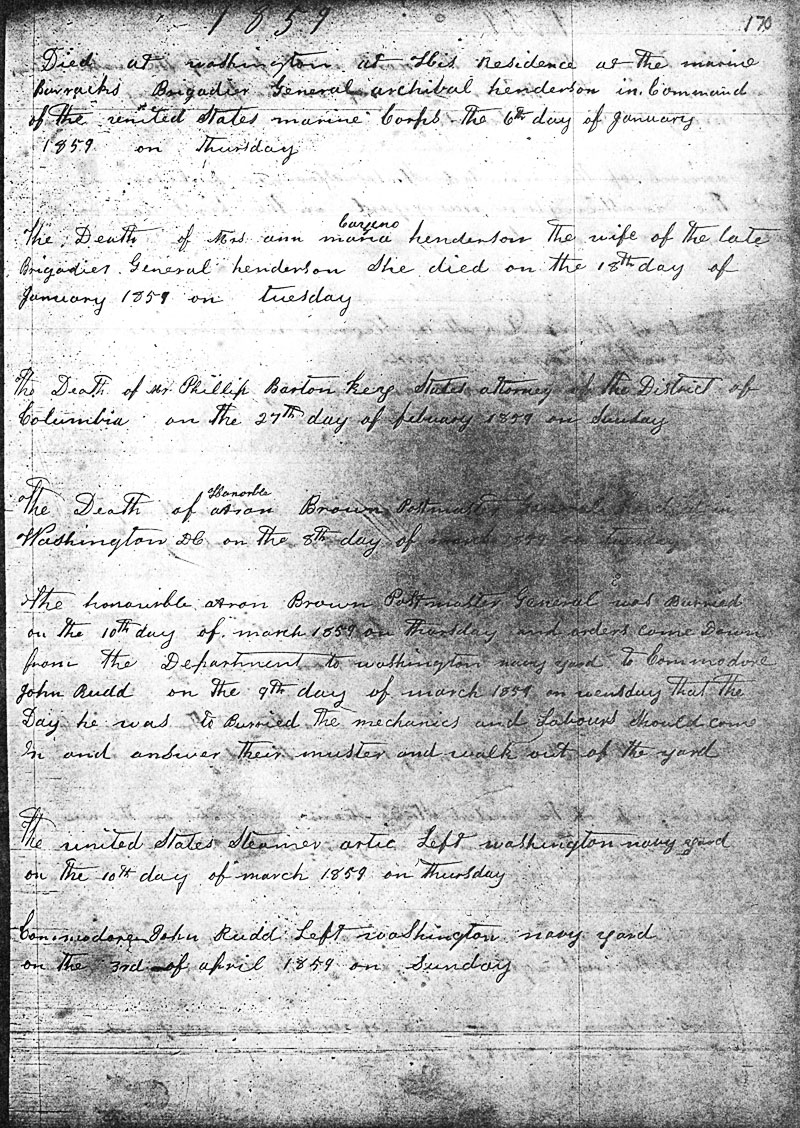 1859
170
Died at washington at His Residence at the marine
Barracks Brigadier General archibal henderson in Command
of the united States marine Corps the 6th day of January
1859 on Thursday
Cazeno
The Death of Mrs ann maria henderson the wife of the late
Brigadier General henderson She died on the 18th day of
January 1859 on tuesday
The Death of Mr Phillip Barton Key States attorney of the District of
Columbia on the 27th day of febuary 1859 on Sunday
Honorble
The Death of aron Brown Postmaster General
Washington DC on the 8th day of march 1859 on tuesday
The honourble aron Brown Postmaster General was Burried
on the 10th day of march 1859 on Thursday and orders come Down
from the Department to washington navy yard to Commodore
John Rudd on the 9th day of march 1859 on wensday that the
Day he was to Burried the mechanics and Labours Should come
In and answer their muster and walk out of the yard
The united States Steamer artic Left washington navy yard
on the 10th day of march 1859 on Thursday
Commodore John Rudd Left washington navy yard
on the 3rd of april 1859 on Sunday